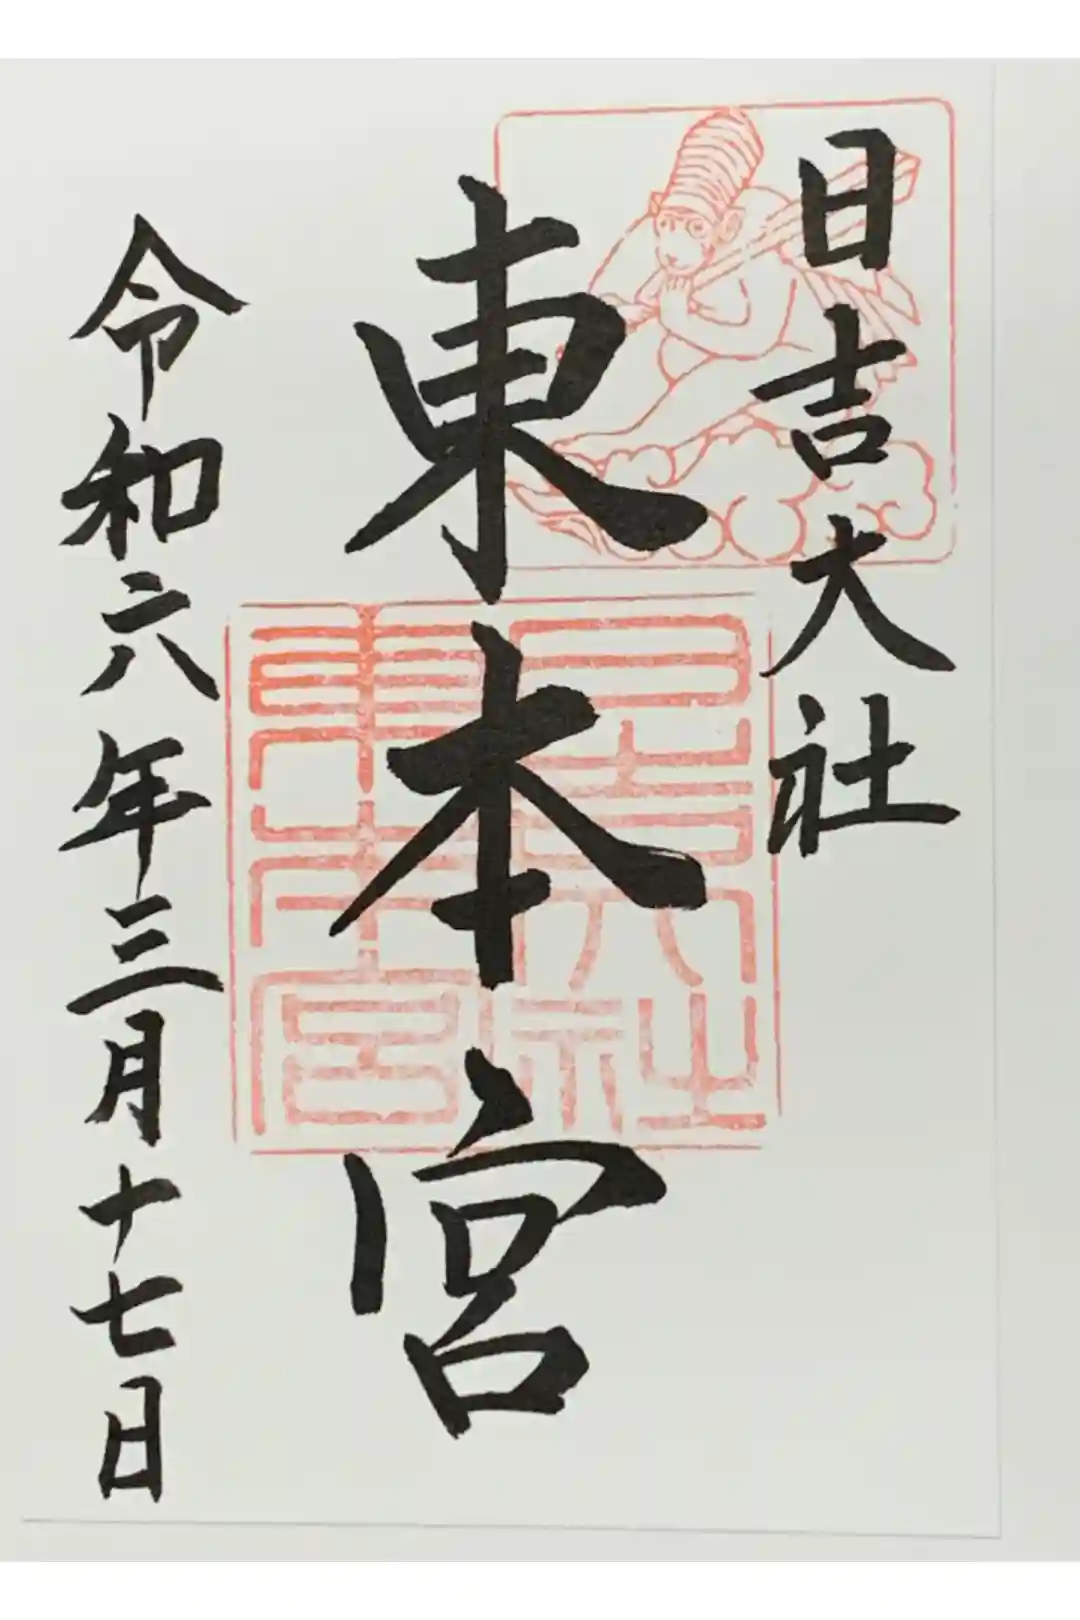 日吉大社
東本宮
令和六年三月十七日
日吉大社
東本宮